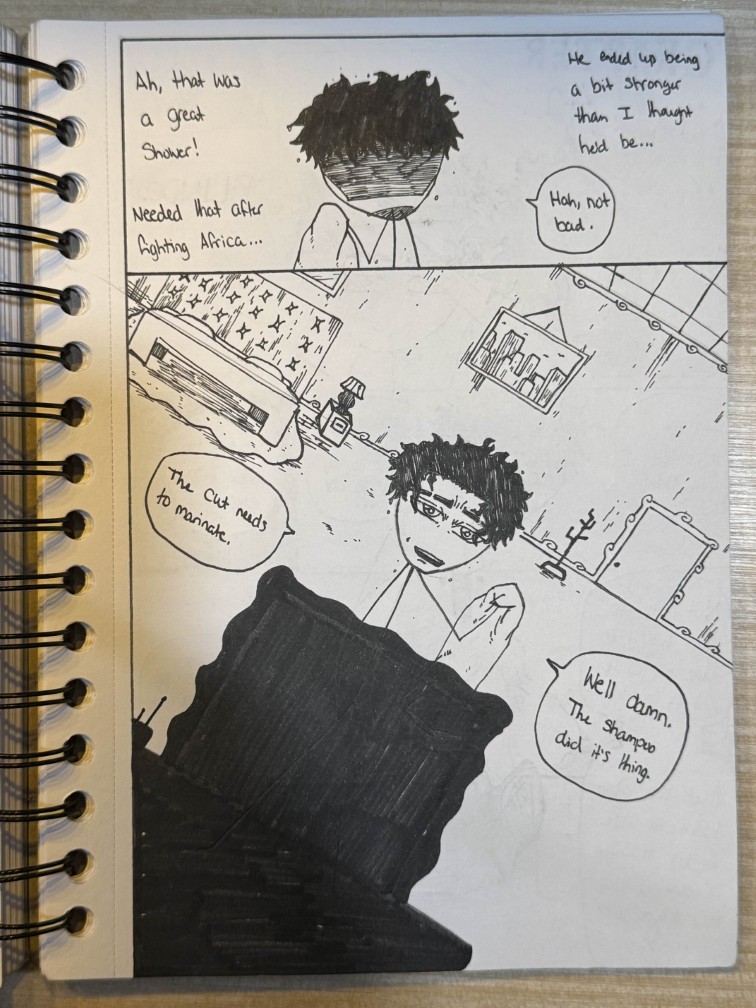 Ah, that was
a great
Shower!
Needed that after
fighting Africa...
He ended up being
a bit stronger
than I thought
he'd be...
Hah, not
bad.
The cut needs
to marinate.
Well damn.
The shampoo
did it's thing.